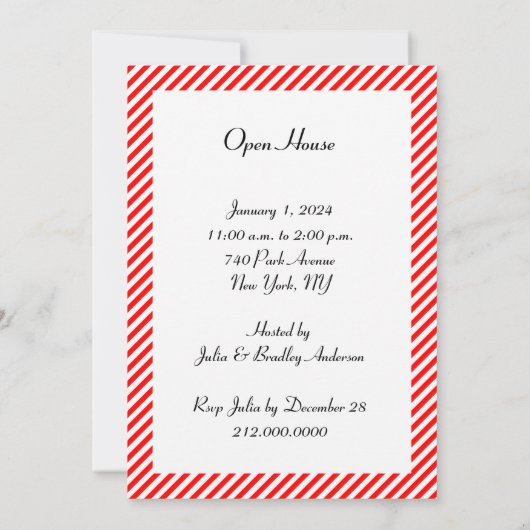 Open House
January 1, 2024
11:00 a.m. to 2:00 p.m.
740 Park Avenue
New York, NY
Hosted by
Julia & Bradley Anderson
Rsvp Julia by December 28
212.000.0000